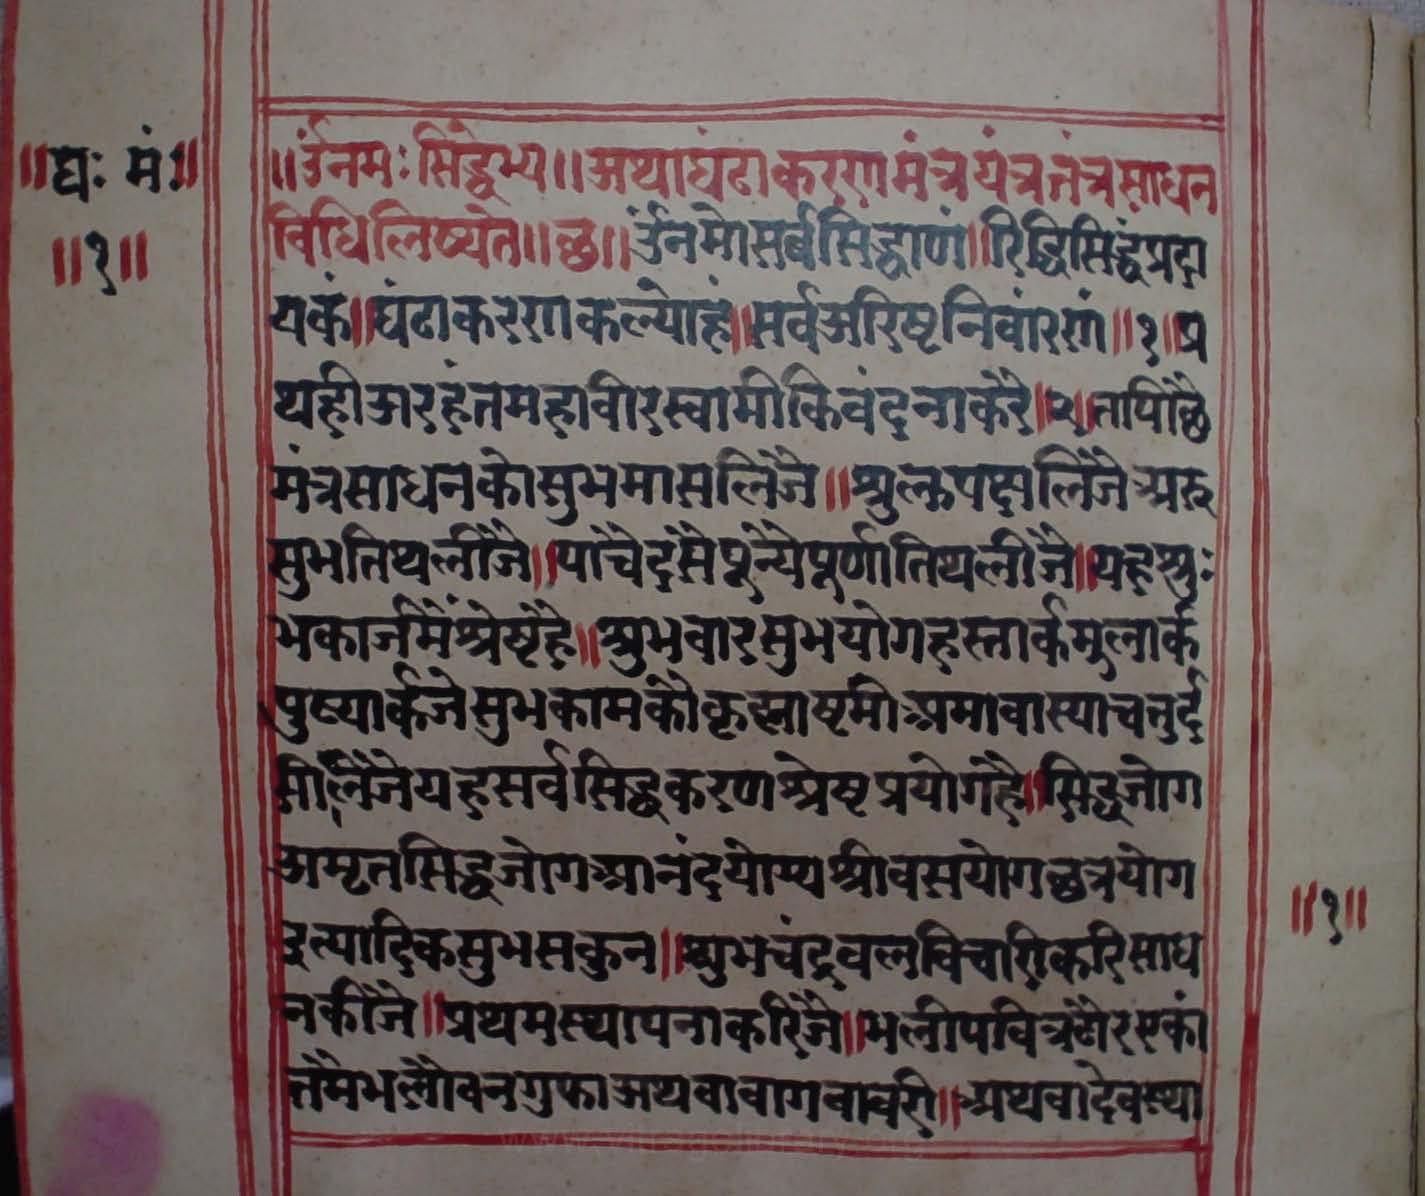 ॥घः मंः॥
॥१॥
॥ॐनमः सिंद्धेभ्य॥अथाघंटाकररणमंत्रयंत्रतंत्रसाधन
विधिलिष्यते॥छ॥ॐनमोसर्वसिद्धाणं॥रिद्धिसिद्धंप्रदा
यकं॥घंटाकररणकल्योहं॥सर्वअरिष्टनिवांरणं॥१॥प्र
थहीअरहंतमहावीरस्वामीकिवंदनाकरै॥२॥तापिछै
मंत्रसाधनकोसुभमासलिजै॥श्रुल्कपक्षलिजैअरु
सुभतिथलीजै॥पाचैदसैपून्यैपूर्णातिथलीजै॥यहश्रुः
भकार्जमैंश्रेष्टहै॥श्रुभवारसुभयोगहस्तार्कमुलार्क
पुष्यार्कजेसुभकामकौकृष्णाष्टमीअमावास्याचतुर्द
सीलिजैयहसर्वसिद्धकरणश्रेष्टप्रयोगहै॥सिद्धजोग
अमृतसिद्धजोगआनंदयोग्यश्रीवसयोगछत्रयोग
इत्यादिकसुभसकुन॥श्रुभचंद्रवलविचारिकरिसाध
नकीजै॥प्रथमस्थापनाकरिजै॥भलीपवित्रठौरएकां
तमैभलौवनगुफाअथवावागवावरी॥अथवादेवस्था
॥१॥